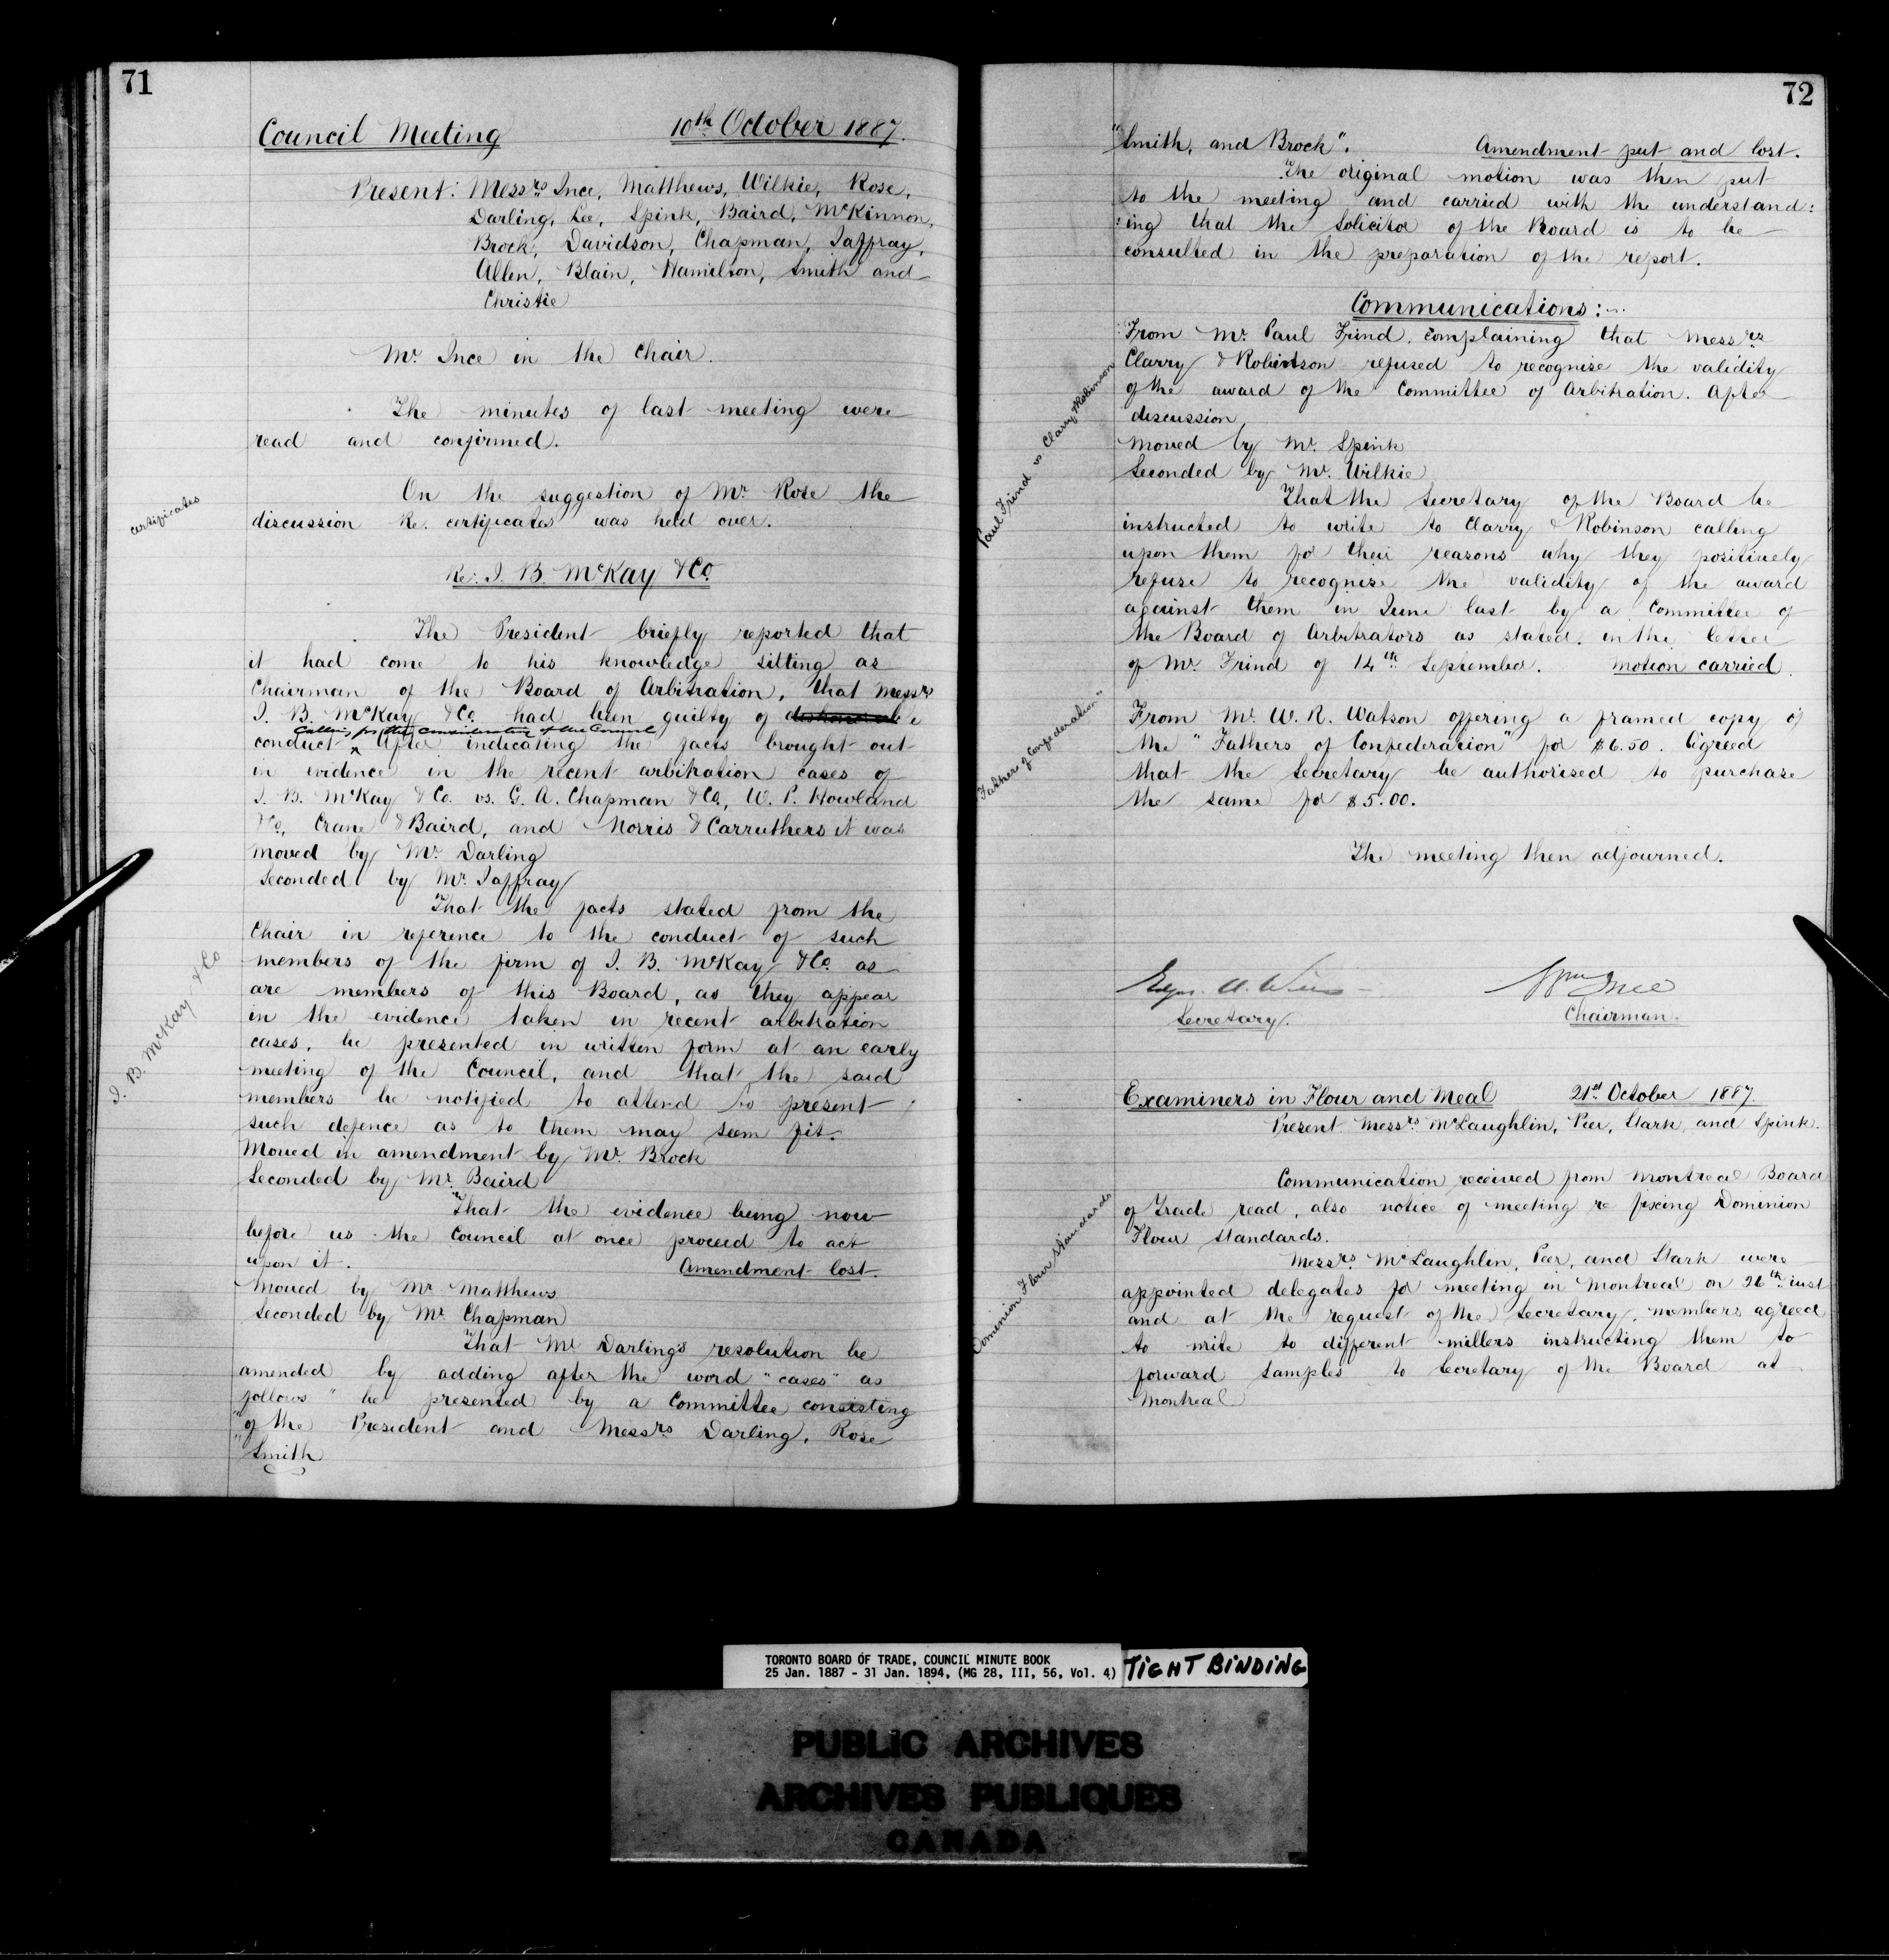 71
Council Meeting 10th October 1887.
Present: Messrs Ince, Matthews, Wilkie, Rose,
Darling, Lee, Spink, Baird, McKinnon,
Brock, Davidson, Chapman, Jaffray,
Allen, Blain, Hamilton, Smith and
Christie
Mr. Ince in the Chair.
The minutes of last meeting were
read and confirmed.
certificates
On the suggestion of Mr. Rose the
discussion Re. certificates was held over.
Re: J. B. McKay & Co.
The President briefly reported that
it had come to his knowledge sitting as
Chairman of the Board of Arbitration, that Messrs
J. B. McKay & Co. had been guilty of dishonorable
calling for the consideration of the Council
conduct After indicating the facts brought out
in evidence in the recent arbitration cases of
J. B. McKay & Co. vs. G. A. Chapman & Co., W. P. Howland
& Co., Crane & Baird, and Norris & Carruthers it was
moved by Mr. Darling
Seconded by Mr. Jaffray
J. B. McKay & Co
"That the facts stated from the
Chair in reference to the conduct of such
members of the firm of J. B. McKay & Co. as
are members of this Board, as they appear
in the evidence taken in recent arbitration
cases, be presented in written form at an early
meeting of the Council, and that the said
members be notified to attend to present
such defence as to them may seem fit.
Moved in amendment by Mr. Brock
Seconded by Mr. Baird
"That the evidence being now
before us the Council at once proceed to act
upon it. Amendment lost.
Moved by Mr Matthews
Seconded by Mr. Chapman
"That Mr. Darling's resolution be
amended by adding after the word "cases" as
follows "be presented by a Committee consisting
"of the President and Messrs Darling, Rose
"Smith
72
"Smith, and Brock". Amendment put and lost.
The original motion was then put
to the meeting and carried with the understand:
:ing that the Solicitor of the Board is to be
consulted in the preparation of the report.
Communications:
Paul Frind vs Clarry & Robinson
From Mr. Paul Frind, complaining that Messrs
Clarry & Robinson refused to recognise the validity
of the award of the Committee of Arbitration. After
discussion,
Moved by Mr. Spink
Seconded by Mr. Wilkie
"That the Secretary of the Board be
instructed to write to Clarry & Robinson calling
upon them for their reasons why they positively
refuse to recognise the validity of the award
against them in June last by a Committee of
the Board of Arbitrators as stated in the letter
of Mr. Frind of 14th September. Motion carried.
"Father of Confederation"
From Mr. W. R. Watson offering a framed copy of
the "Fathers of Confederation" for $6.50. Agreed
that the Secretary be authorised to purchase
the same for $5.00.
The meeting then adjourned.
Edgar A. Wills Wm Ince
Secretary. Chairman.
Examiners in Flour and Meal 21st October 1887.
Present Messrs McLaughlin, Peer, Stark, and Spink.
Dominion Flour Standards
Communication received from Montreal Board
of Trade read, also notice of meeting re fixing Dominion
Flour standards.
Messrs. McLaughlin, Peer, and Stark were
appointed delegates for meeting in Montreal on 26th inst
and at the request of the Secretary, members agreed
to write to different millers instructing them to
forward samples to Secretary of the Board at
Montreal
TORONTO BOARD OF TRADE, COUNCIL MINUTE BOOK
25 Jan. 1887 - 31 Jan. 1894, (MG 28, III, 56, Vol. 4)
TIGHT BINDING
PUBLIC ARCHIVES
ARCHIVES PUBLIQUES
CANADA